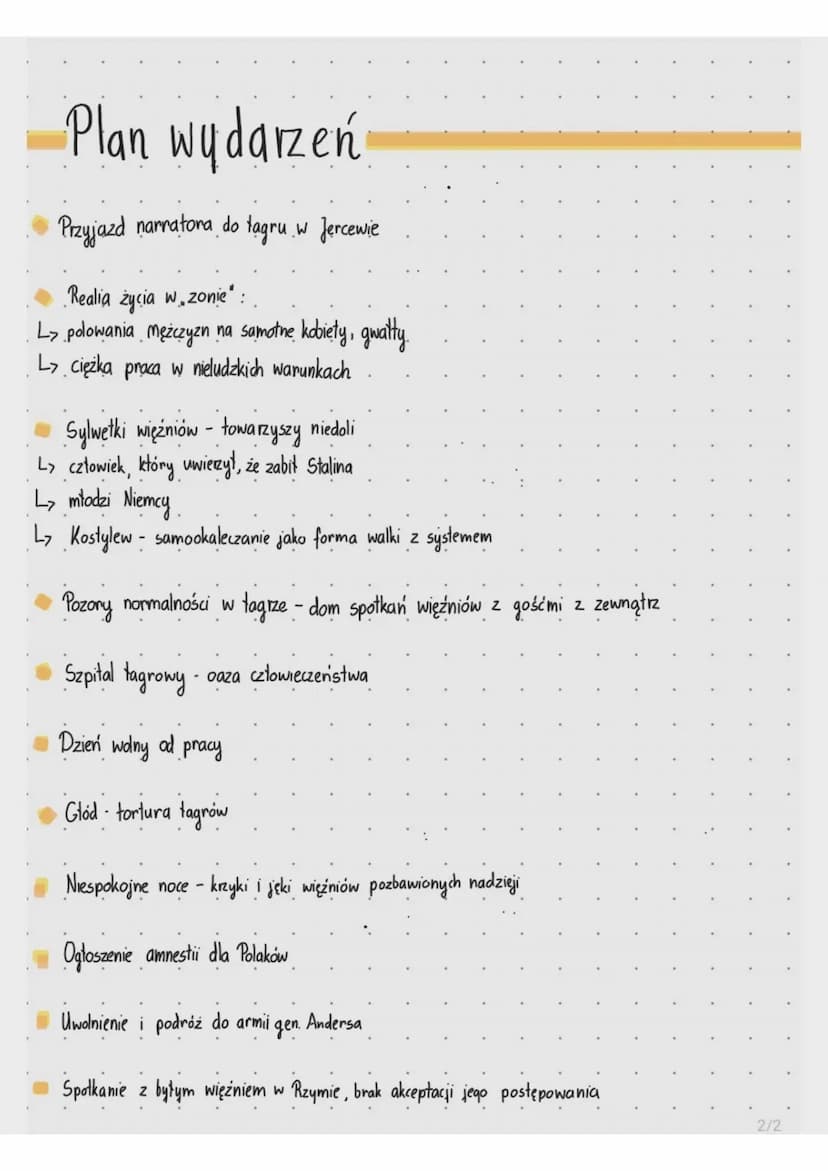 Plan wydarzeń
Przyjazd narratora do łagru w Jercewie
Realia życia w „zonie" :
↳ polowania mężczyzn na samotne kobiety, gwałty
↳ ciężka praca w nieludzkich warunkach
Sylwetki więźniów - towarzyszy niedoli
↳ człowiek, który uwierzył, że zabił Stalina
↳ młodzi Niemcy
↳ Kostylew - samookaleczanie jako forma walki z systemem
Pozory normalności w łagrze - dom spotkań więźniów z gośćmi z zewnątrz
Szpital łagrowy - oaza człowieczeństwa
Dzień wolny od pracy
Głód - tortura łagrów
Niespokojne noce - krzyki i jęki więźniów pozbawionych nadzieji
Ogłoszenie amnestii dla Polaków
Uwolnienie i podróż do armii gen. Andersa
Spotkanie z byłym więźniem w Rzymie, brak akceptacji jego postępowania
2/2